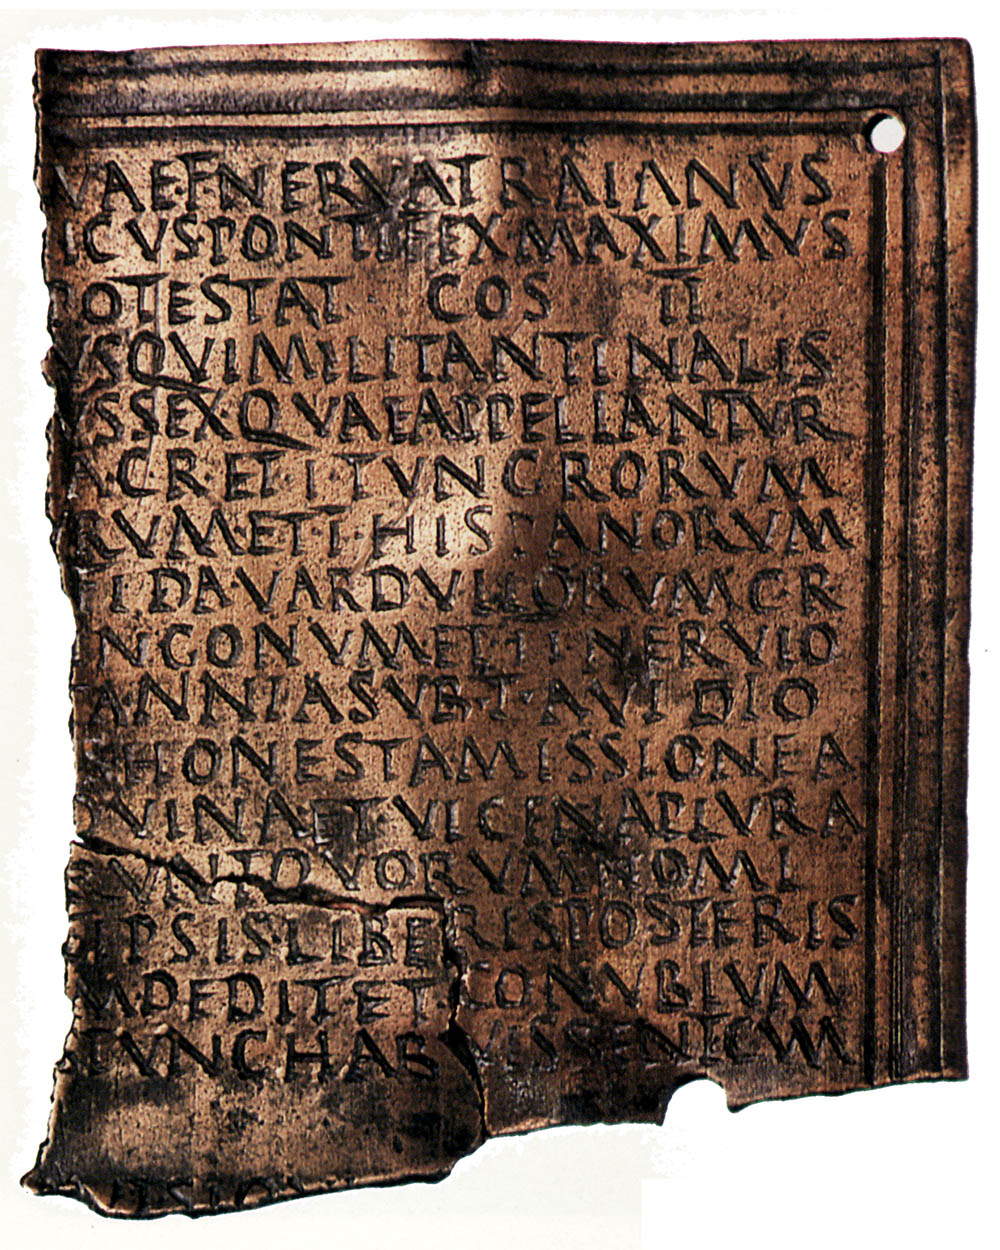 VAE·F·NERVA·TRAIANVS
ICVS·PONTIFEX MAXIMVS
POTESTAT COS II
VS QVI MILITANT IN ALIS
VS SEX·QVAE APPELLANTVR
A·C·R·ET·I·TVNGRORVM
RVM·ET·I·HISPANORVM
ET I·DA·VARDVLLORVM C·R
INGONVM ET·II NERVIO
TANNIA SVB·T·AVIDIO
HONESTA MISSIONE A
QVINA·ET·VICENA PLVRA
RVNT QVORVM NOMI
IPSIS·LIBERIS POSTERIS
M·DEDIT ET·CONVBIVM
TVNC HABVISSENT·CVM